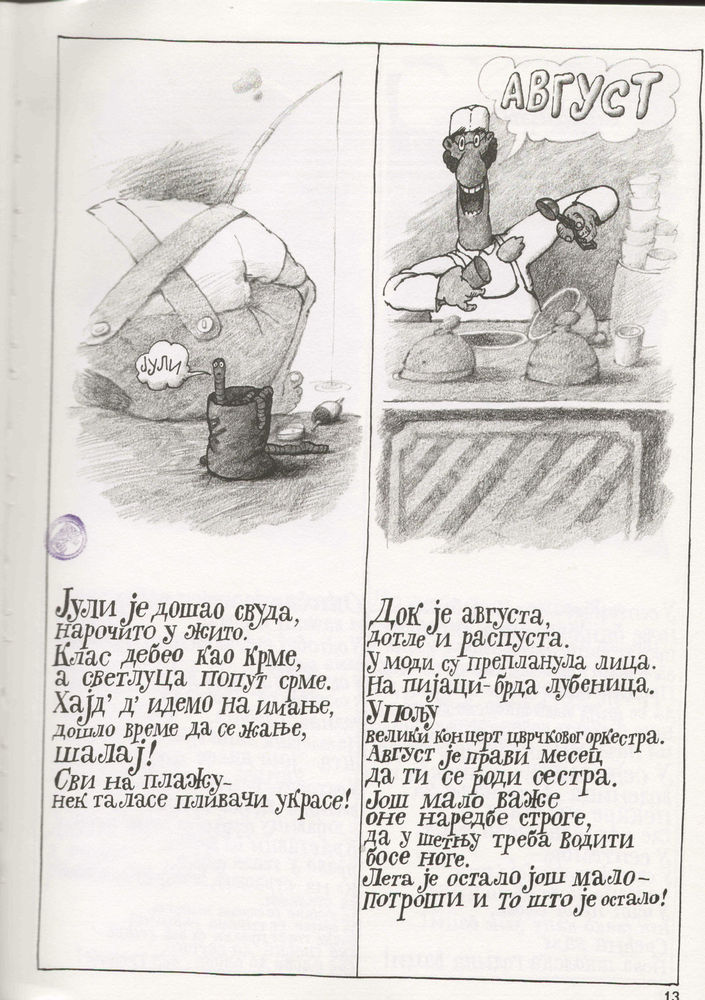 ЈУЛИ
Јули је дошао свуда,
нарочито у жито.
Клас дебео као крме,
а светлуца попут срме.
Хајд’ д’ идемо на имање,
дошло време да се жање,
шалај!
Сви на плажу-
нек таласе пливачи украсе!
АВГУСТ
Док је августа,
дотле и распуста.
У моди су препланула лица.
На пијаци-брда лубеница.
У пољу
велики концерт цврчковог оркестра.
Август је прави месец
да ти се роди сестра.
Још мало важе
оне наредбе строге,
да у шетњу треба водити
босе ноге.
Лета је остало још мало-
потроши и то што је остало!
13